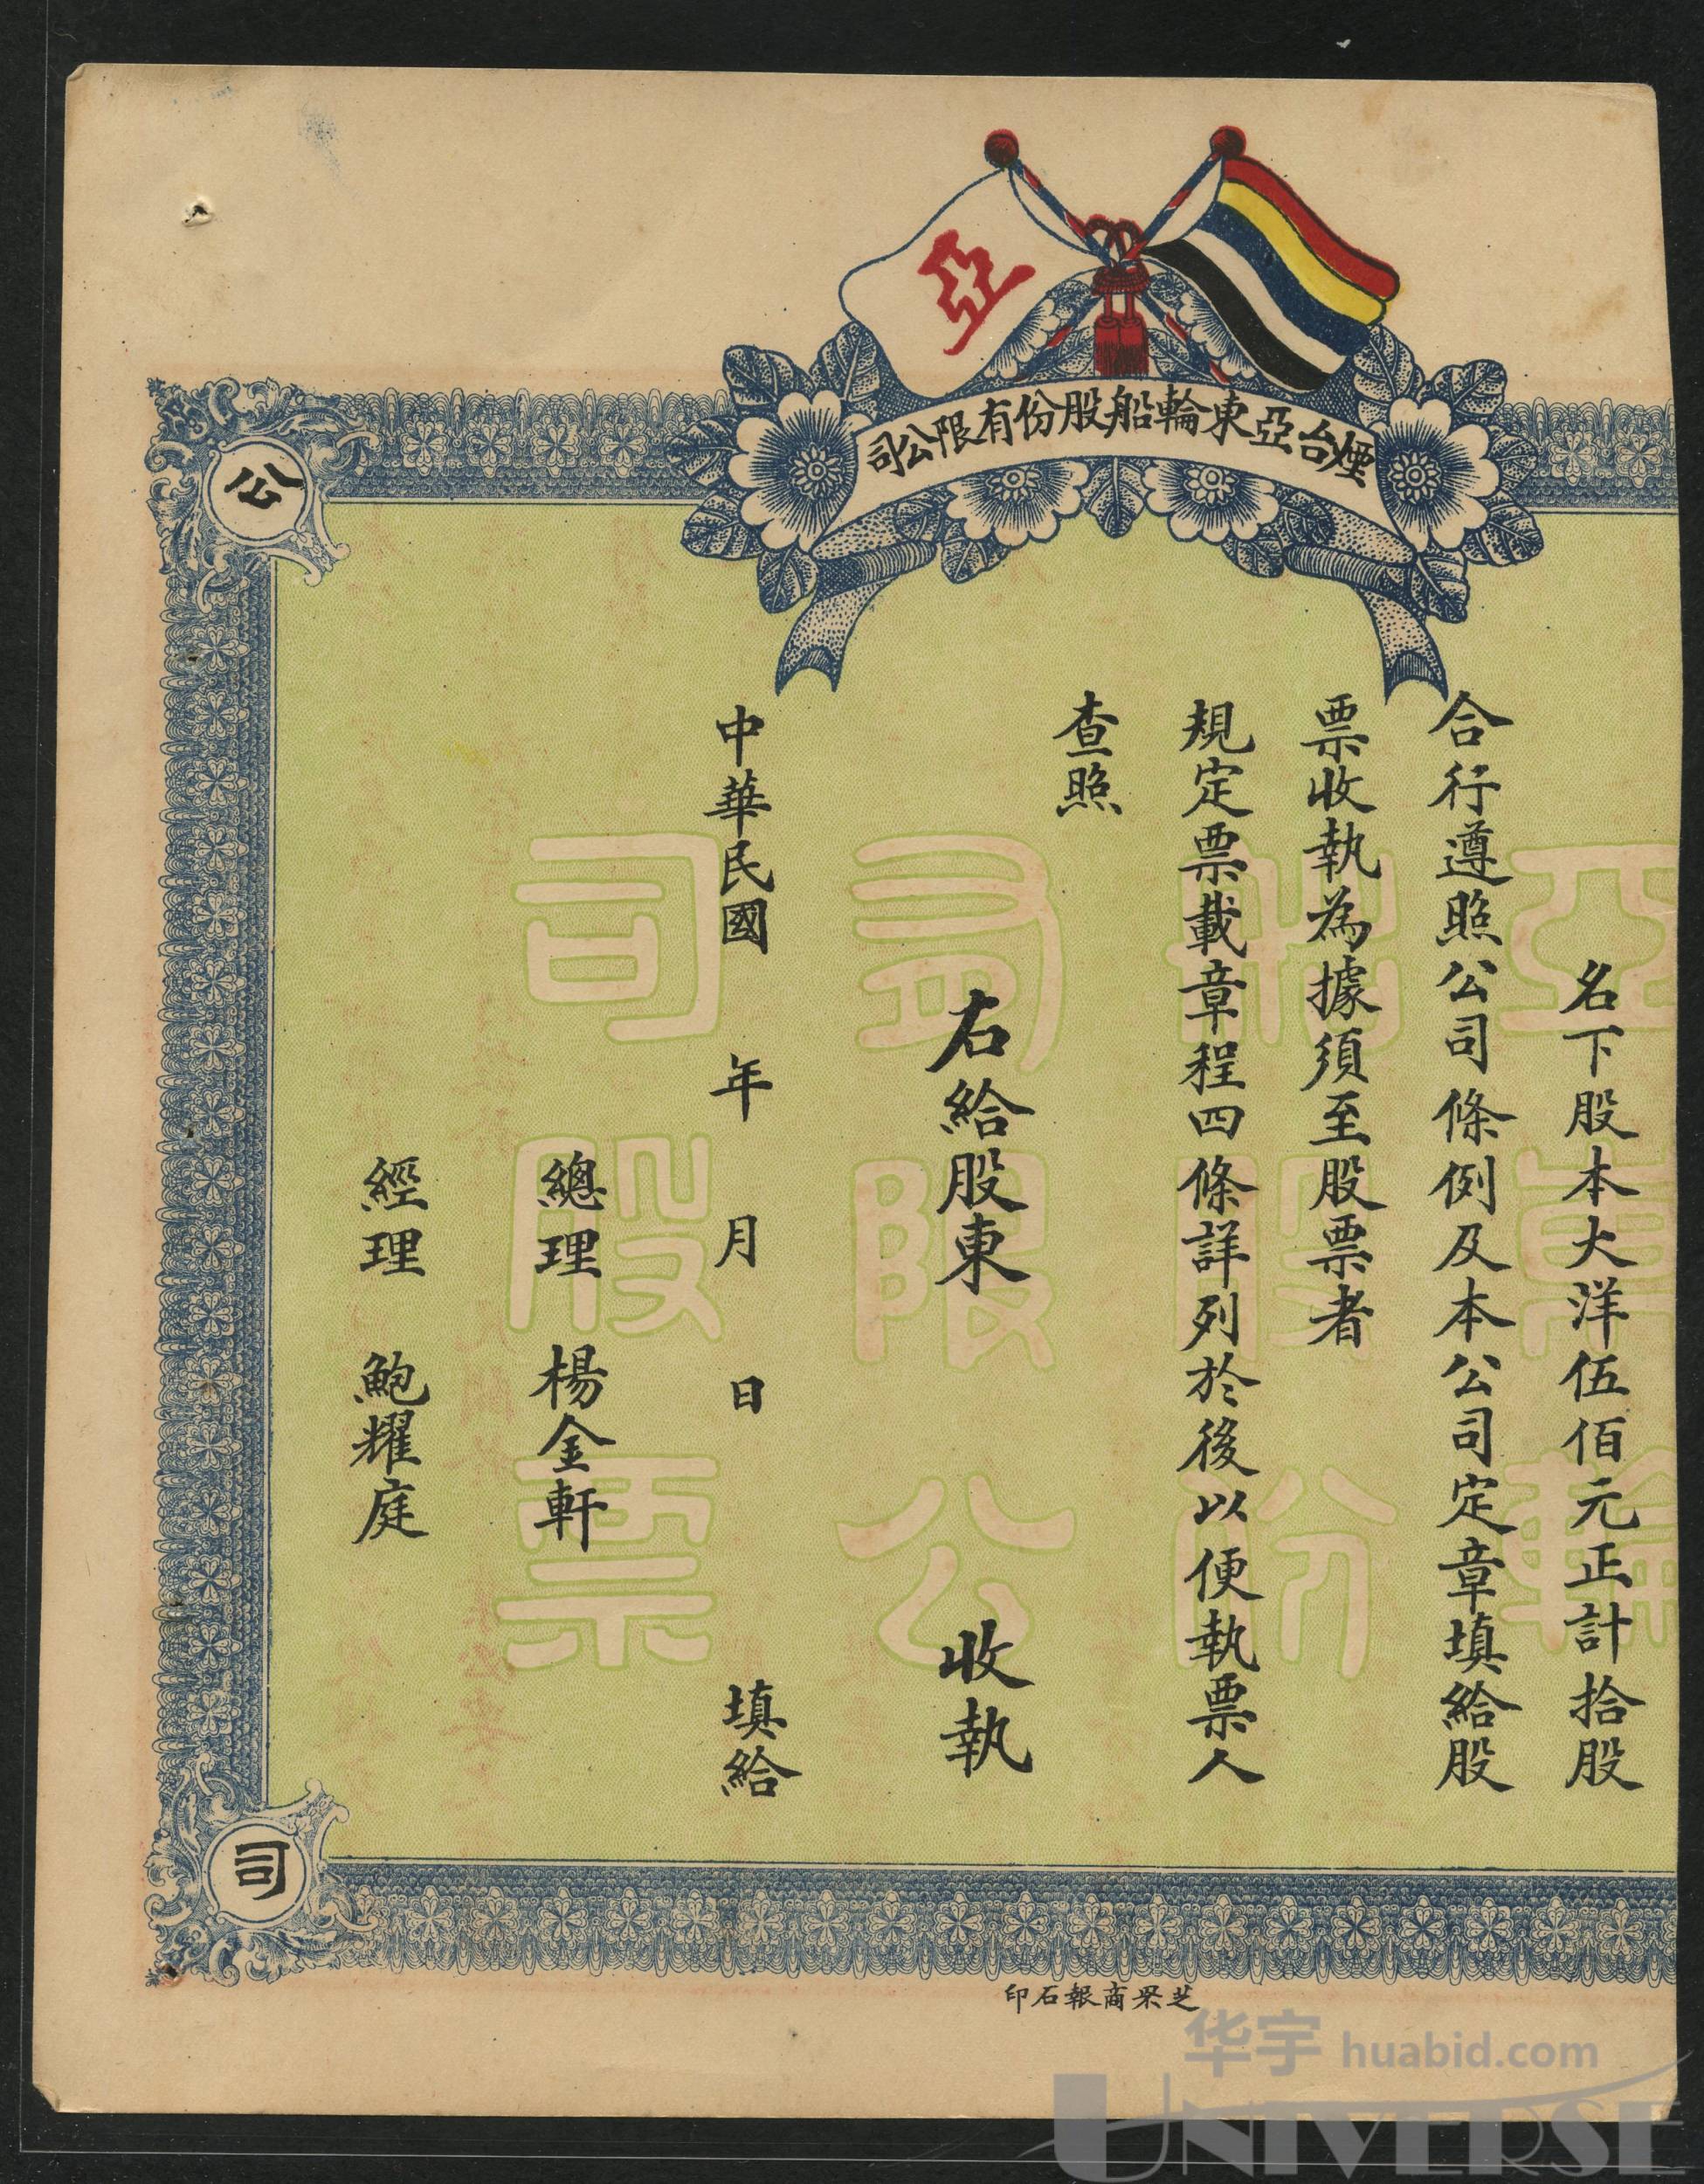 亞
煙台亞東輪船股份有限公司
公
名下股本大洋伍佰元正計拾股
合行遵照公司條例及本公司定章填給股
票收執為據須至股票者
規定票載章程四條詳列於後以便執票人
查照
右給股東 收執
中華民國 年 月 日 填給
總理 楊金軒
經理 鮑耀庭
船股份
限公
司股票
司
芝罘商報石印
华宇 huabid.com
UNIVERSE